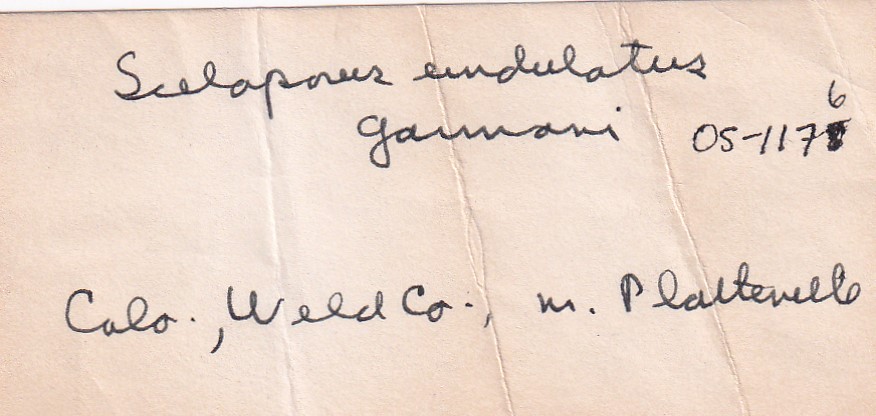 Sceloporus undulatus
garmani OS-1176
Colo., Weld Co., n. Platteville